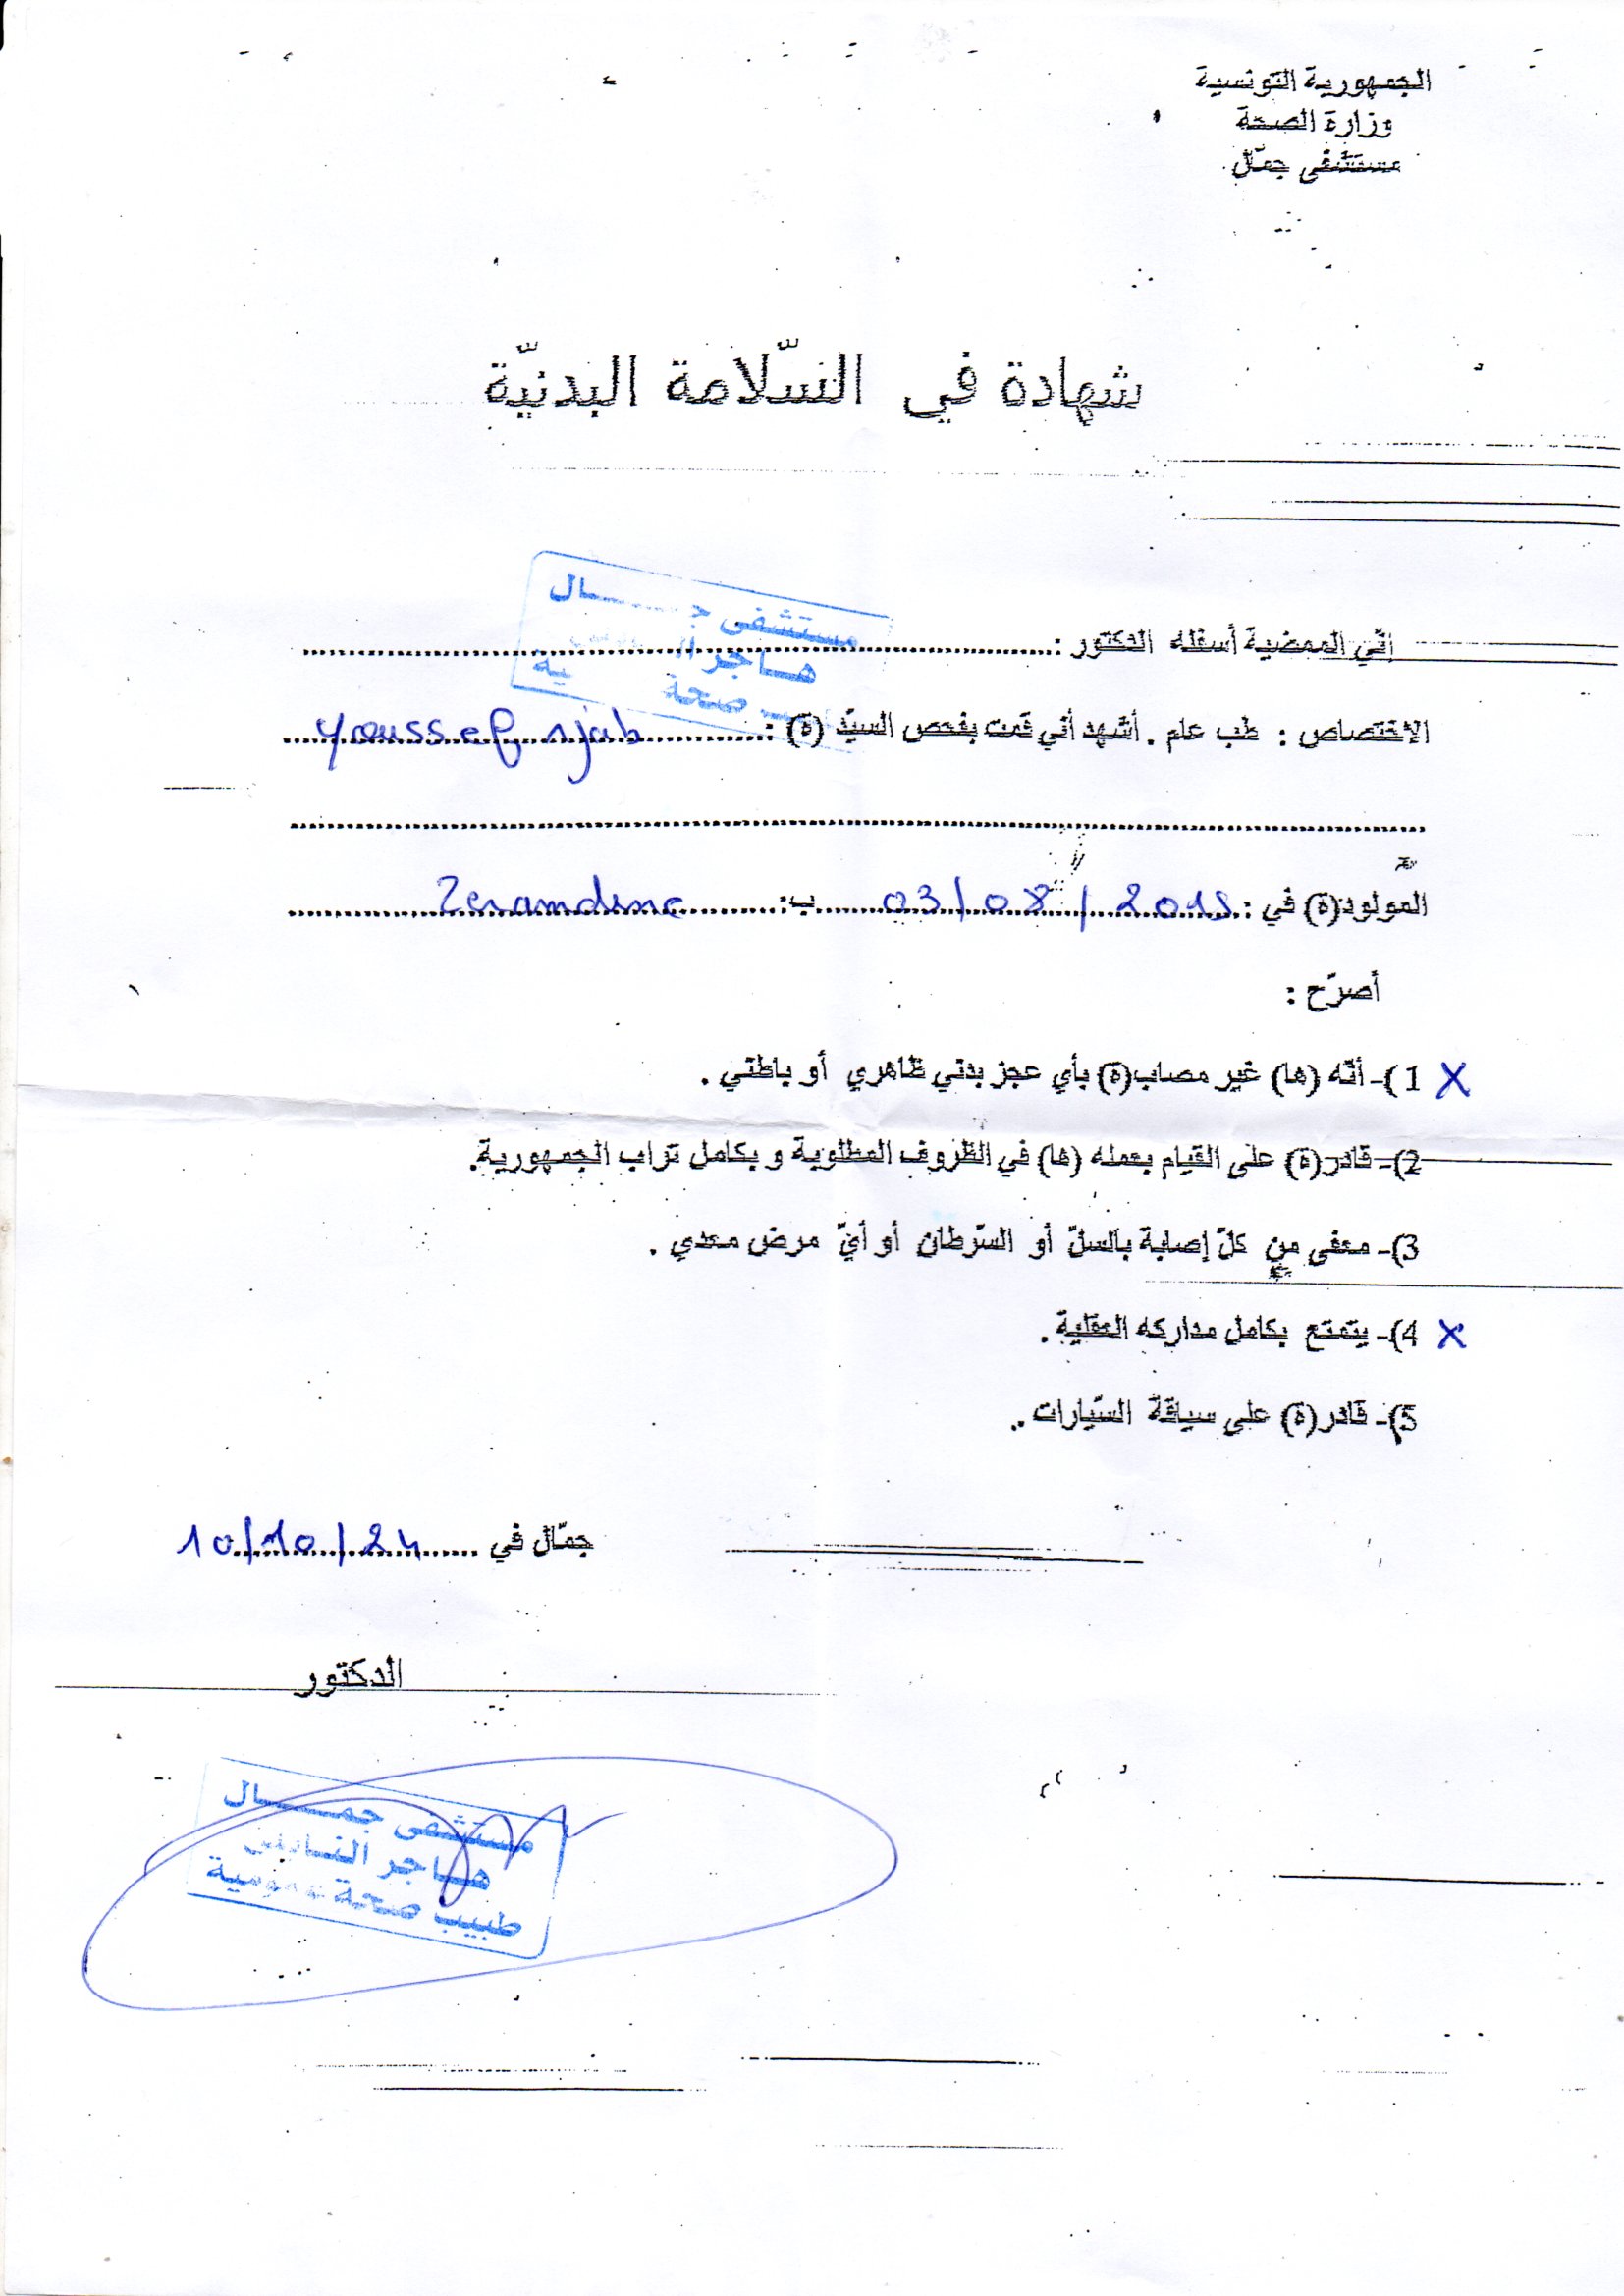 الجمهورية التونسية
وزارة الصحة
مستشفى جمّال
شهادة في السّلامة البدنيّة
مستشفى
هاجر
صحة
إنّي الممضية أسفله الدكتور :
الإختصاص : طب عام . أشهد أني قمت بفحص السيّد (ة) : Youssef njah
المولود(ة) في : 03/08/2018 ب: Zeramdine
أصرّح :
X 1)- أنّه (ها) غير مصاب(ة) بأي عجز بدني ظاهري أو باطني .
2)- قادر(ة) على القيام بعمله (ها) في الظروف المطلوبة و بكامل تراب الجمهورية.
3)- معفى من كلّ إصابة بالسلّ أو السّرطان أو أيّ مرض معدي .
X 4)- يتمتع بكامل مداركه العقلية .
5)- قادر(ة) على سياقة السّيارات .
جمّال في 10/10/24
الدكتور
مستشفى جمال
هاجر
طبيب صحة عمومية